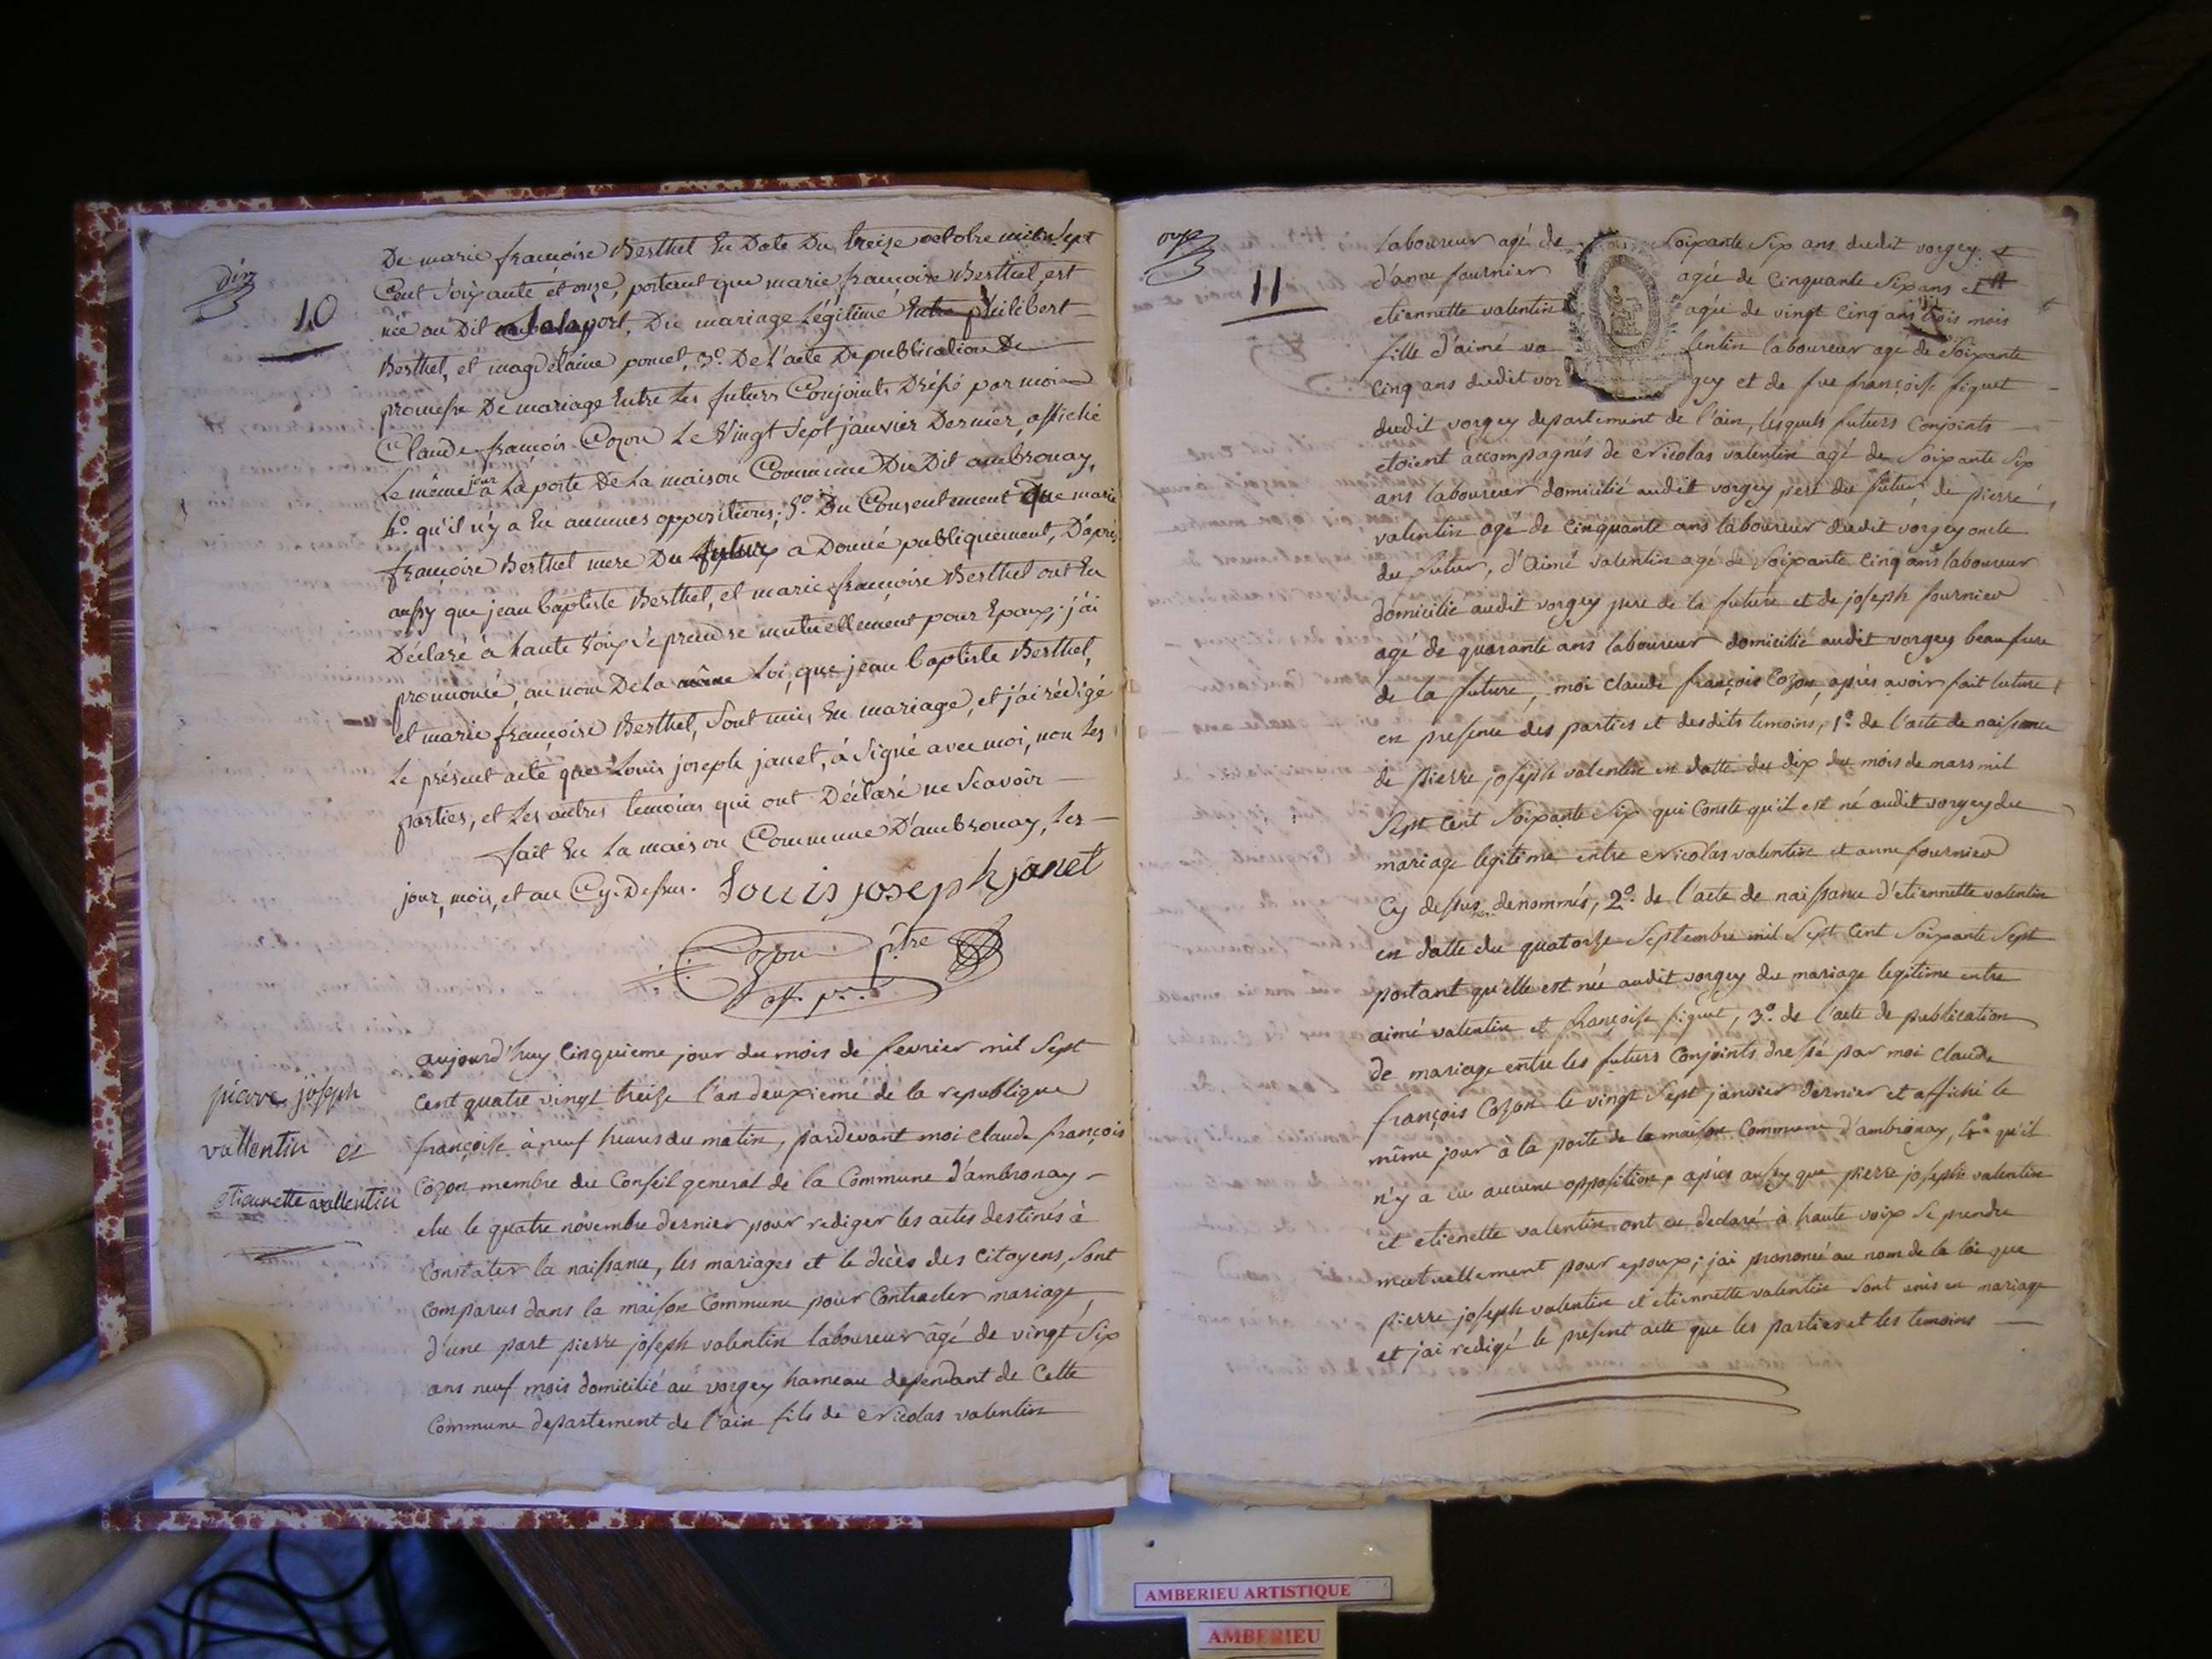 dix
10
De marie francoise Berthet En Date Du treize octobre mil Sept
Cent Soixante et onze, portant que marie francoise Berthet, est
née au Dit port, Du mariage Légitime Entre philibert
Berthet, et magdelaine poncet, 3º. De L'acte De publication De
promesse De mariage Entre Les futurs Conjoints Dréssé par moi
Claude françois Cozon Le Vingt Sept janvier Dernier, affiché
Le même jour a La porte De La maison Commune Du Dit ambronay,
4º. qu'il n'y a Eu aucunes oppositions; 5º. Du Consentement Que marie
françoise Berthet mere Du futur a Donné publiquement, D'après
aussy que jean baptiste Berthet, et marie francoise Berthet ont Eu
Déclaré à haute Voix Se prendre mutuellement pour Epoux; j'ai
prononcé, au nom De La Loi, que jean baptiste Berthet,
et marie francoise Berthet, Sont unis En mariage, et j'ai rédigé
Le présent acte que Louis joseph janet, à Signé avec moi, non Les
parties, et Les autres temoins qui ont Déclaré ne Scavoir
fait En La maison Commune D'ambronay, Les
jour, mois, et an Cy-Dessus. Louis joseph janet
Cozon ptre
off. p.
pierre joseph
vallentin et
etiennette vallentin
aujourd'huy Cinquieme jour du mois de fevrier mil Sept
Cent quatre vingt treize l'an deuxieme de la republique
françoise à neuf heures du matin, pardevant moi Claude françois
Cozon membre du Conseil general de la Commune d'ambronay
elu le quatre novembre dernier pour rediger les actes destinés à
Constater la naissance, les mariages et le decès des Citoyens, Sont
Comparus dans la maison Commune pour Contracter mariage,
d'une part pierre joseph valentin laboureur âgé de vingt Six
ans neuf mois domicilié au vorgey hameau dependant de Cette
Commune departement de l'ain fils de Nicolas valentin
onze
11
laboureur agé de Soixante Six ans dudit vorgey et
d'anne fournier agée de Cinquante Six ans et
etiennette valentin agée de vingt Cinq ans trois mois
fille d'aimé valentin laboureur agé de Soixante
Cinq ans dudit vorgey et de fue françoise figuet
dudit vorgey departement de l'ain, lesquels futurs Conjoints
etoient accompagnés de Nicolas valentin agé de Soixante Six
ans laboureur domicilié audit vorgey pere du futur, de pierre
valentin agé de Cinquante ans laboureur dudit vorgey oncle
du futur, d'aimé valentin agé de Soixante Cinq ans laboureur
domicilié audit vorgey pere de la future et de joseph fournier
agé de quarante ans laboureur domicilié audit vorgey beaufrere
de la future, moi Claude françois Cozon, après avoir fait lecture
en presence des parties et desdits temoins, 1º. de l'acte de naissance
de pierre joseph valentin en datte du dix du mois de mars mil
Sept Cent Soixante Six qui Conste qu'il est né audit vorgey du
mariage legitime entre Nicolas valentin et anne fournier
Cy dessus denommés, 2º. de l'acte de naissance d'etiennette valentin
en datte du quatorze Septembre mil Sept Cent Soixante Sept
portant qu'elle est née audit vorgey du mariage legitime entre
aimé valentin et françoise figuet, 3º. de l'acte de publication
de mariage entre les futurs Conjoints dressé par moi Claude
françois Cozon le vingt Sept janvier dernier et affiché le
même jour à la porte de la maison Commune d'ambronay, 4º qu'il
n'y a eu aucune opposition, après aussy que pierre joseph valentin
et etienette valentin ont eu declaré à haute voix Se prendre
mutuellement pour epoux; jai prononcé au nom de la loi que
pierre joseph valentin et etiennette valentin Sont unis en mariage
et jai redigé le present acte que les parties et les temoins
AMBERIEU ARTISTIQUE
AMBERIEU